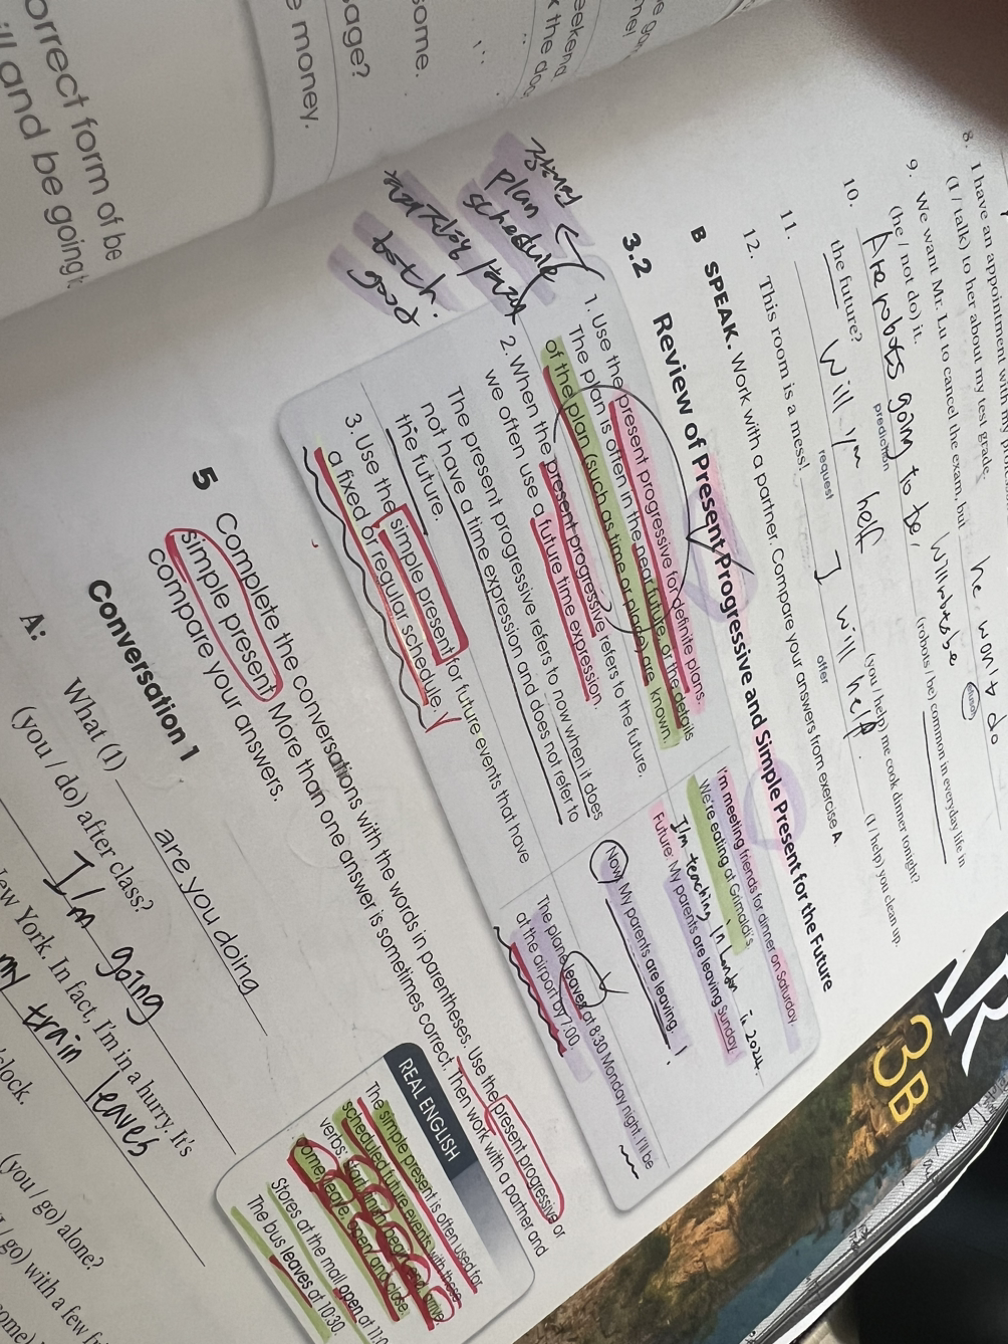 orrect form of be
ill and be going t
e money.
page?
some.
8. I have an appointment
(I / talk) to her about my test grade.
9. We want Mr. Lu to cancel the exam, but he won't do
(he / not do) it.
10. Are robots going to be,
prediction
(robots / be) common in everyday life in
the future?
11. Will you help
request
(you / help) me cook dinner tonight?
12. This room is a mess! I will help
offer
(I / help) you clean up.
B SPEAK. Work with a partner. Compare your answers from exercise A
3.2 Review of Present Progressive and Simple Present for the Future
1. Use the present progressive for definite plans.
The plan is often in the near future, or the details
of the plan (such as time or place) are known.
I'm meeting friends for dinner on Saturday.
We're eating at Grimaldi's
I'm teaching in London in 2024.
2. When the present progressive refers to the future,
we often use a future time expression.
The present progressive refers to now when it does
not have a time expression and does not refer to
the future.
Future: My parents are leaving Sunday.
Now: My parents are leaving.
3. Use the simple present for future events that have
a fixed or regular schedule.
The plane leaves at 8:30 Monday night. I'll be
at the airport by 7:00.
plan
schedule
both
good
5 Complete the conversations with the words in parentheses. Use the present progressive or
simple present. More than one answer is sometimes correct. Then work with a partner and
compare your answers.
REAL ENGLISH
The simple present is often used for
scheduled future events with these
verbs:
open and close.
Stores at the mall open at
The bus leaves at 10:30.
Conversation 1
A: What (1) are you doing
(you / do) after class?
I'm going
ew York. In fact, I'm in a hurry. It's
my train leaves
clock.
(you / go) alone?
go) with a few
3B